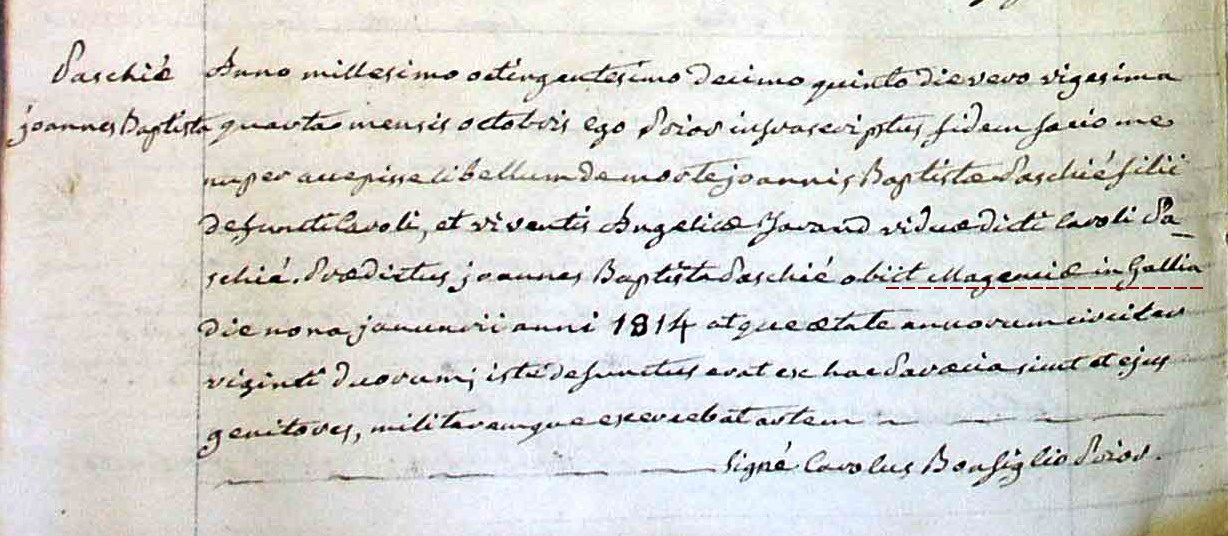 Paschié
Joannes Baptista
Anno millesimo octingentesimo decimo quinto die vero vigesima
quarta mensis octobris ego Prior infrascriptus fidem facio me
nuper accepisse libellum de morte joannis Baptistæ Paschié filii
defuncti Caroli, et viventis Angelicæ Jarand viduæ dicti Caroli Pa_
schié. Prædictus joannes Baptista Paschié obiit Magenciæ in Gallia
die nona januarii anni 1814 atque ætate annorum circiter
viginti duorum; iste defunctus erat ex hac Paræcia sicut et ejus
genitores, militaremque exercebat artem
signé Carolus Bonsiglio Prior.